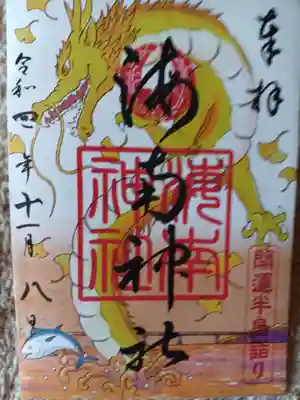 奉拝
海南神社
海南神社
開運半島詣り
令和四年十一月八日